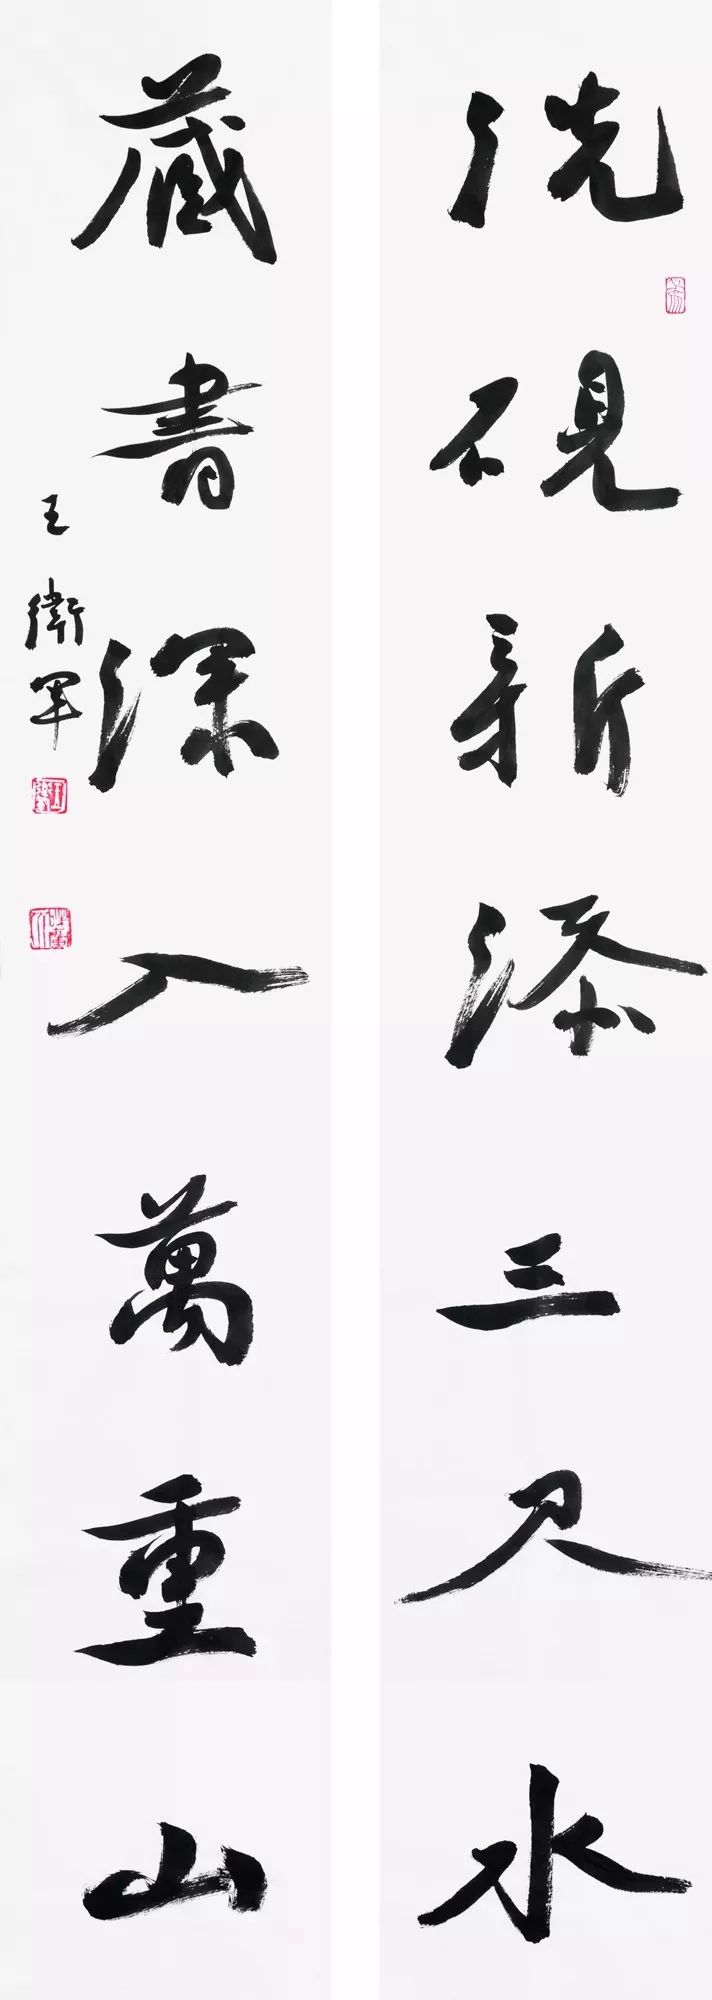 洗硯新添三尺水
藏書深入萬重山
王衛軍